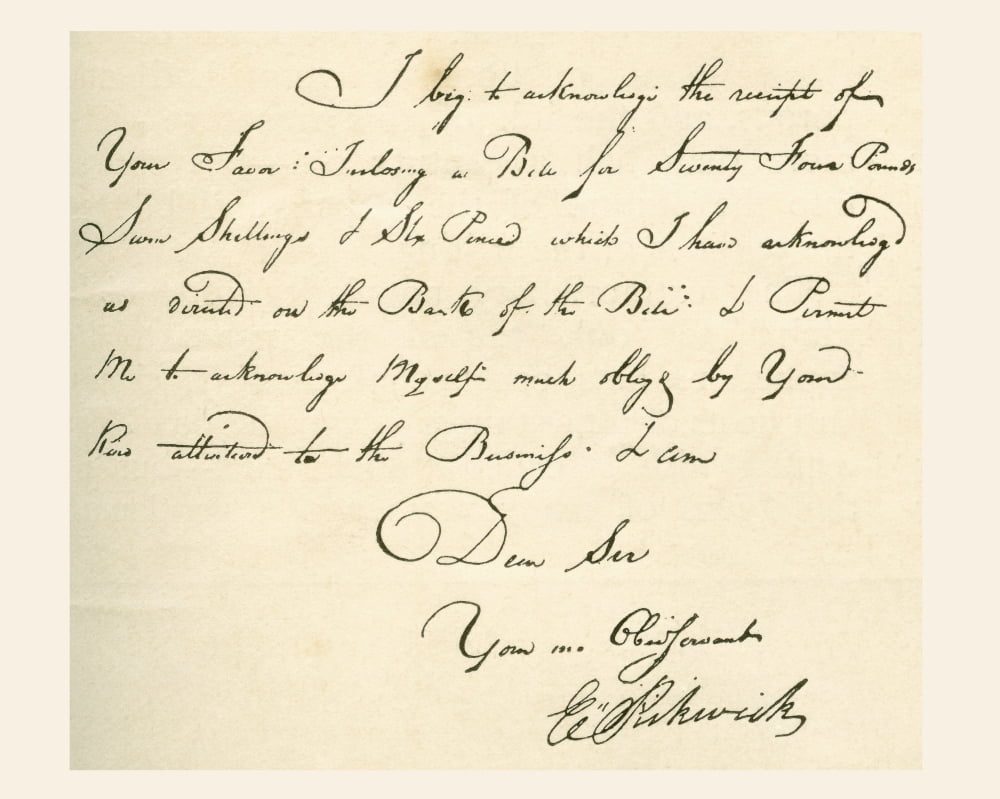 I beg to acknowledge the receipt of
Your Favor Inclosing a Bill for Twenty Four Pounds
Seven Shillings & Six Pence which I have acknowledg'd
as directed on the Back of the Bill & Permit
Me to acknowledge Myself much oblyg'd by Your
Kind attention to the Business I am
Dear Sir
Your mo. Obed Servant
E Pickwick